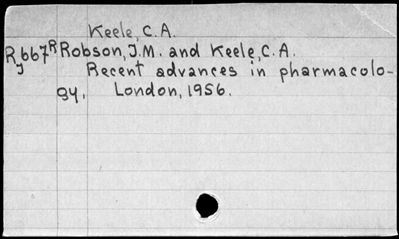 Keele, C.A.
RJ667R Robson, J.M. and Keele, C.A.
Recent advances in pharmacolo-
gy. London, 1956.